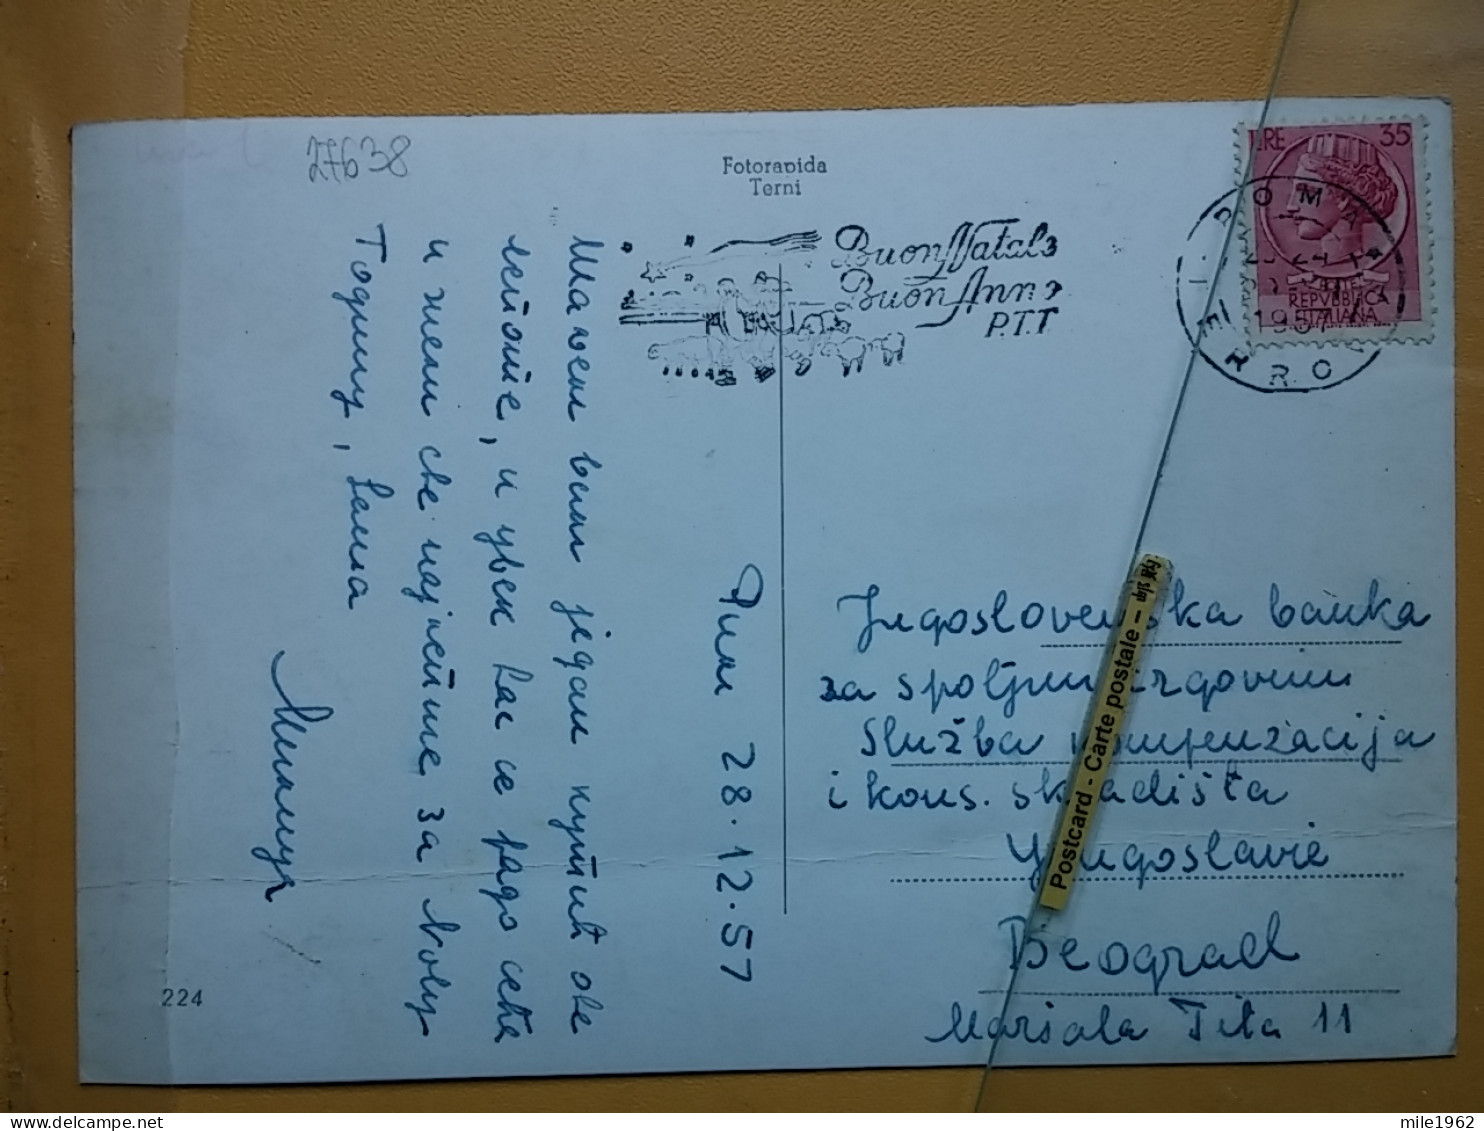 27638
Fotorapida
Terni
LIRE 35
POSTE
REPVBBLICA
ITALIANA
ROMA
1957
FERROVIA
Buon Natale
Buon Anno
P.T.T
Рим 28.12.57
Шаљем вам један кутић ове
лепоте, и увек вас се радо сећа
и жели све најлепше за Нову
Годину, Ваша
Jugoslovenska banka
za spoljnu trgovinu
Služba kompenzacija
i kons. skladišta
Yougoslavie
Beograd
Maršala Tita 11
Postcard - Carte postale -
224
mile1962